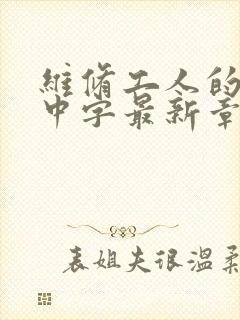 维修工人的
中字最新章
表姐夫很温柔